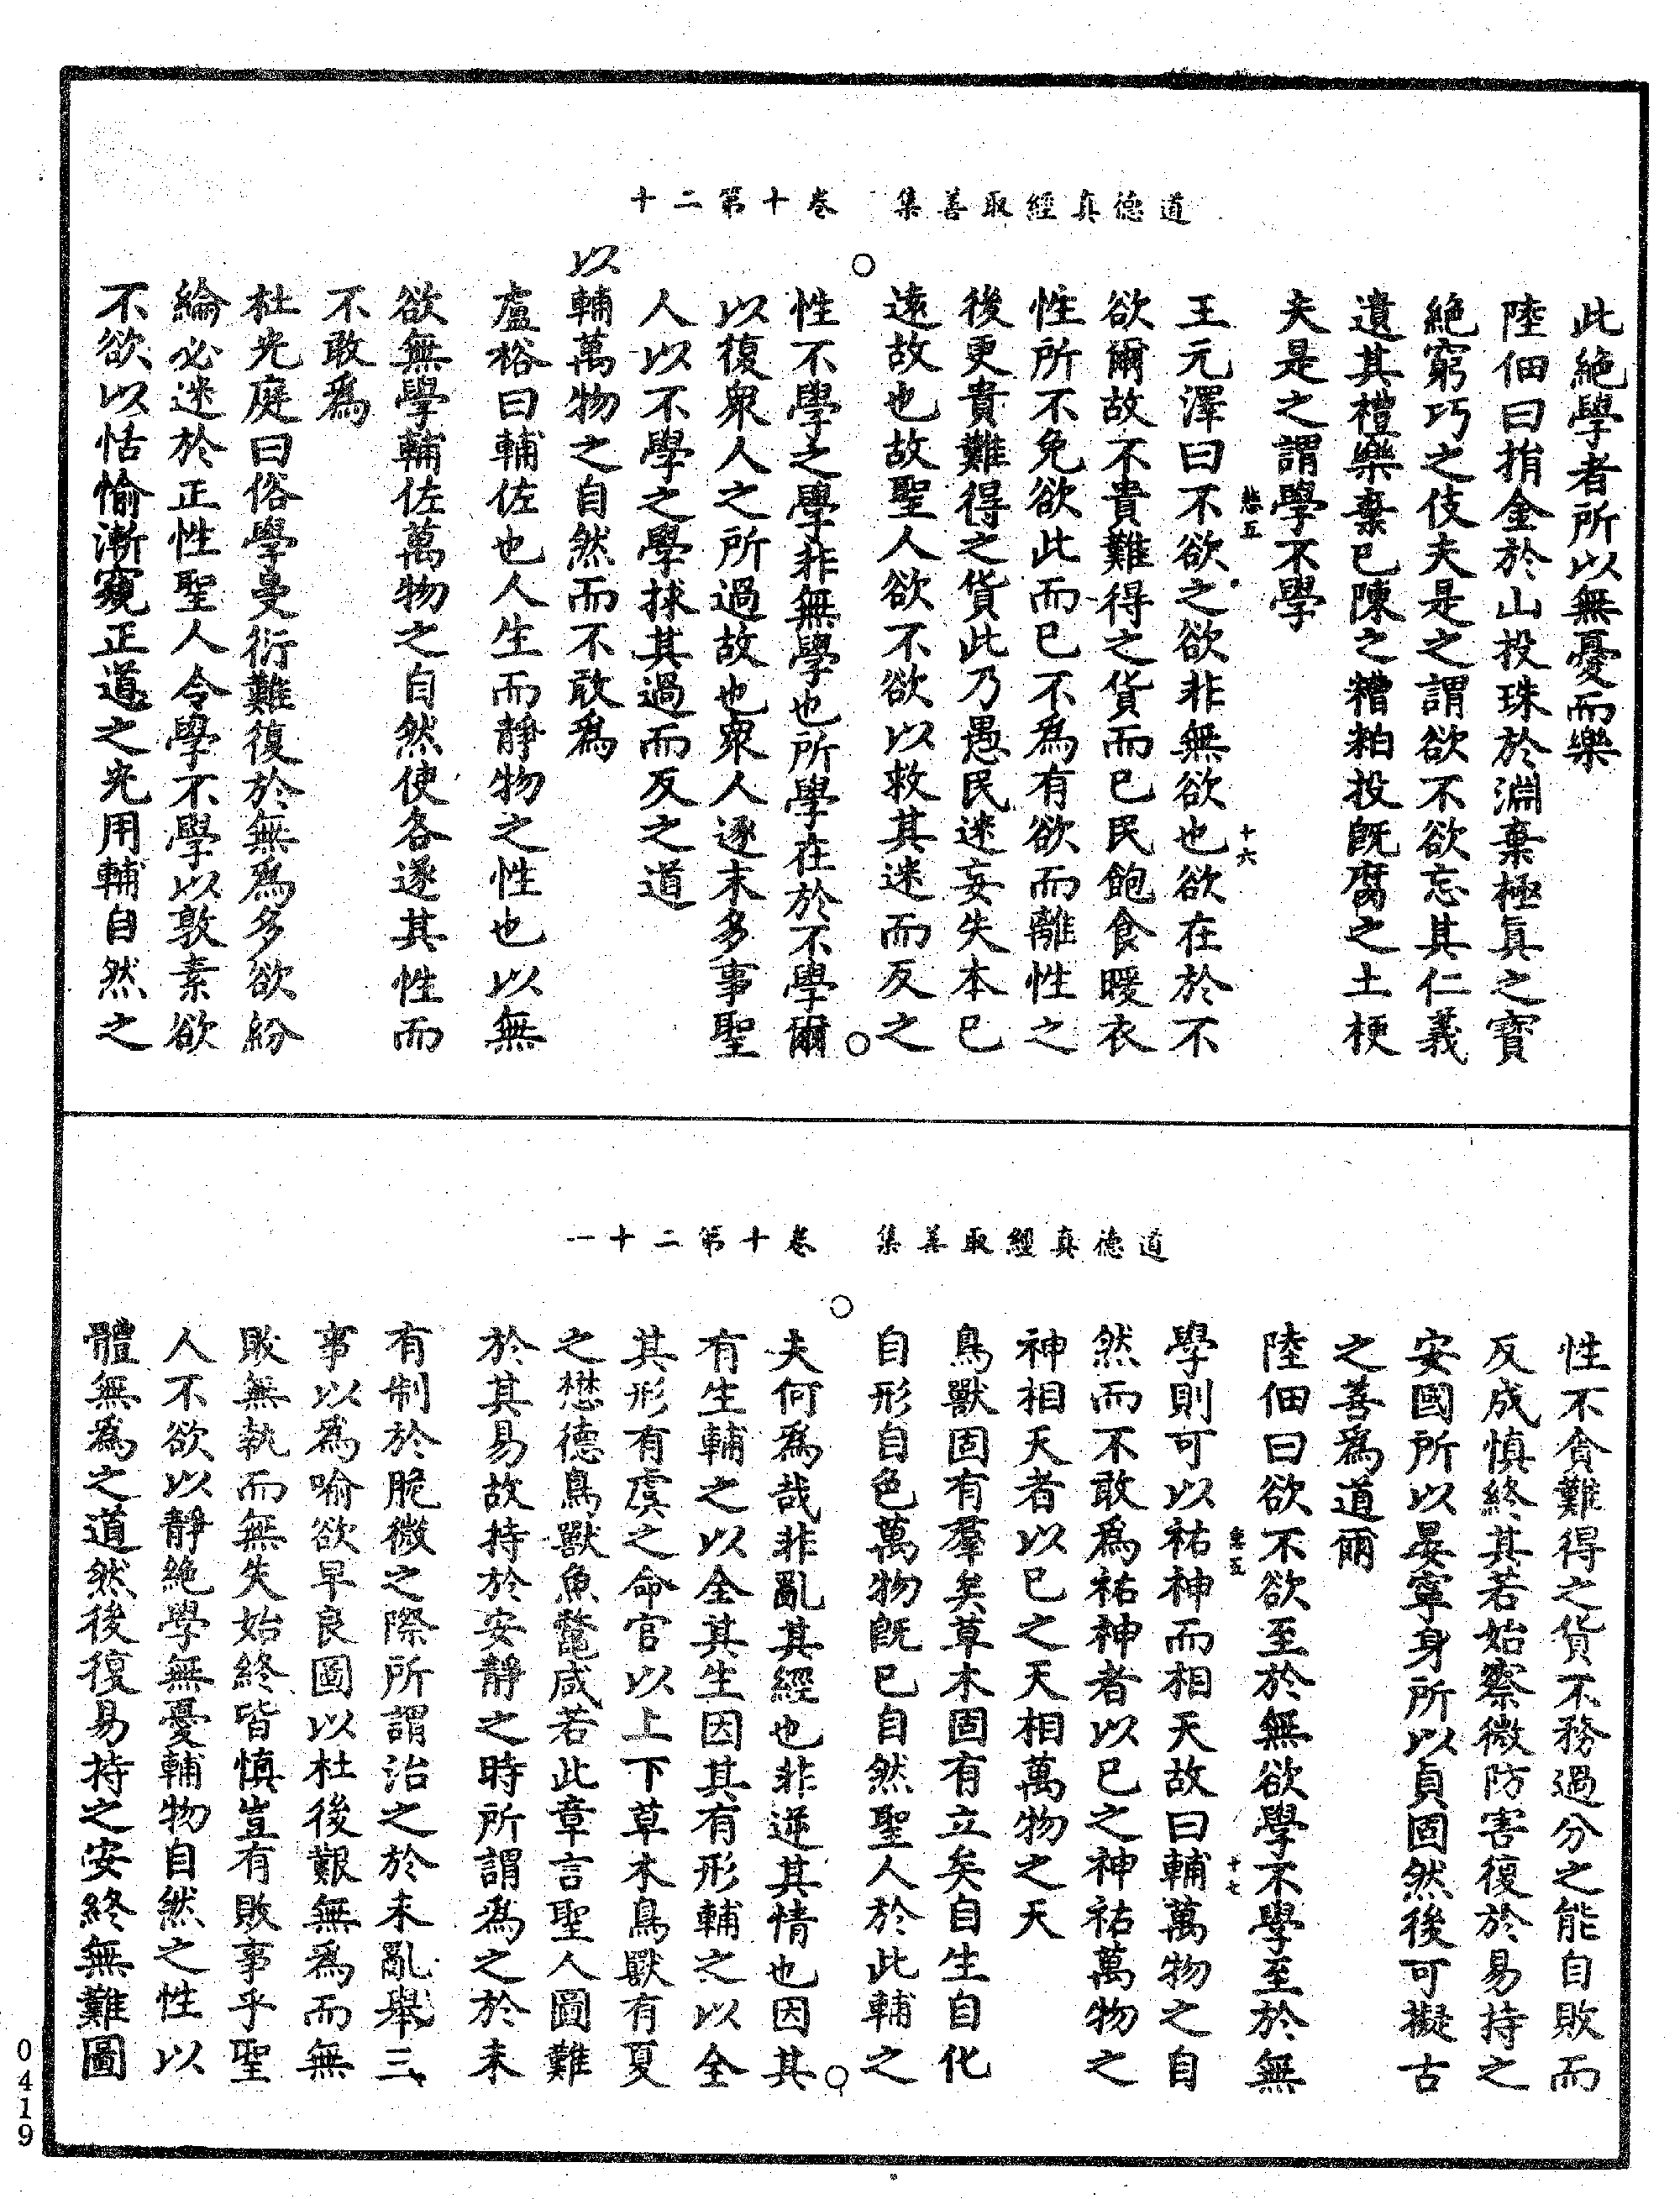 道德真經取善集　卷十第二十
此絶學者所以無憂而樂
陸佃曰捐金於山投珠於淵棄極真之寶
絶窮巧之伎夫是之謂欲不欲忘其仁義
遺其禮樂棄已陳之糟粕投既腐之土梗
夫是之謂學不學
悲五　十六
王元澤曰不欲之欲非無欲也欲在於不
欲爾故不貴難得之貨而已民飽食暖衣
性所不免欲此而已不為有欲而離性之
後更貴難得之貨此乃愚民迷妄失本已
遠故也故聖人欲不欲以救其迷而反之
性不學之學非無學也所學在於不學爾
以復衆人之所過故也衆人逐末多事聖
人以不學之學捄其過而反之道
以輔萬物之自然而不敢為
盧裕曰輔佐也人生而靜物之性也以無
欲無學輔佐萬物之自然使各遂其性而
不敢為
杜光庭曰俗學曼衍難復於無為多欲紛
綸必迷於正性聖人令學不學以敦素欲
不欲以恬愉漸窺正道之光用輔自然之
道德真經取善集　卷十第二十一
性不貪難得之貨不務過分之能自敗而
反成慎終其若始察微防害復於易持之
安國所以晏寧身所以貞固然後可擬古
之善為道爾
陸佃曰欲不欲至於無欲學不學至於無
悲五　十七
學則可以祐神而相天故曰輔萬物之自
然而不敢為祐神者以已之神祐萬物之
神相天者以已之天相萬物之天
鳥獸固有羣矣草木固有立矣自生自化
自形自色萬物既已自然聖人於此輔之
夫何為哉非亂其經也非逆其情也因其
有生輔之以全其生因其有形輔之以全
其形有虞之命官以上下草木鳥獸有夏
之懋德鳥獸魚鼈咸若此章言聖人圖難
於其易故持於安靜之時所謂為之於未
有制於脆微之際所謂治之於未亂舉三
事以為喻欲早良圖以杜後艱無為而無
敗無執而無失始終皆慎豈有敗事乎聖
人不欲以靜絶學無憂輔物自然之性以
體無為之道然後復易持之安終無難圖
0419